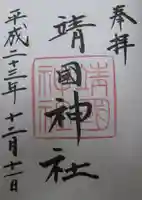 奉拝
靖國神社
平成二十三年十二月十一日
靖國神社